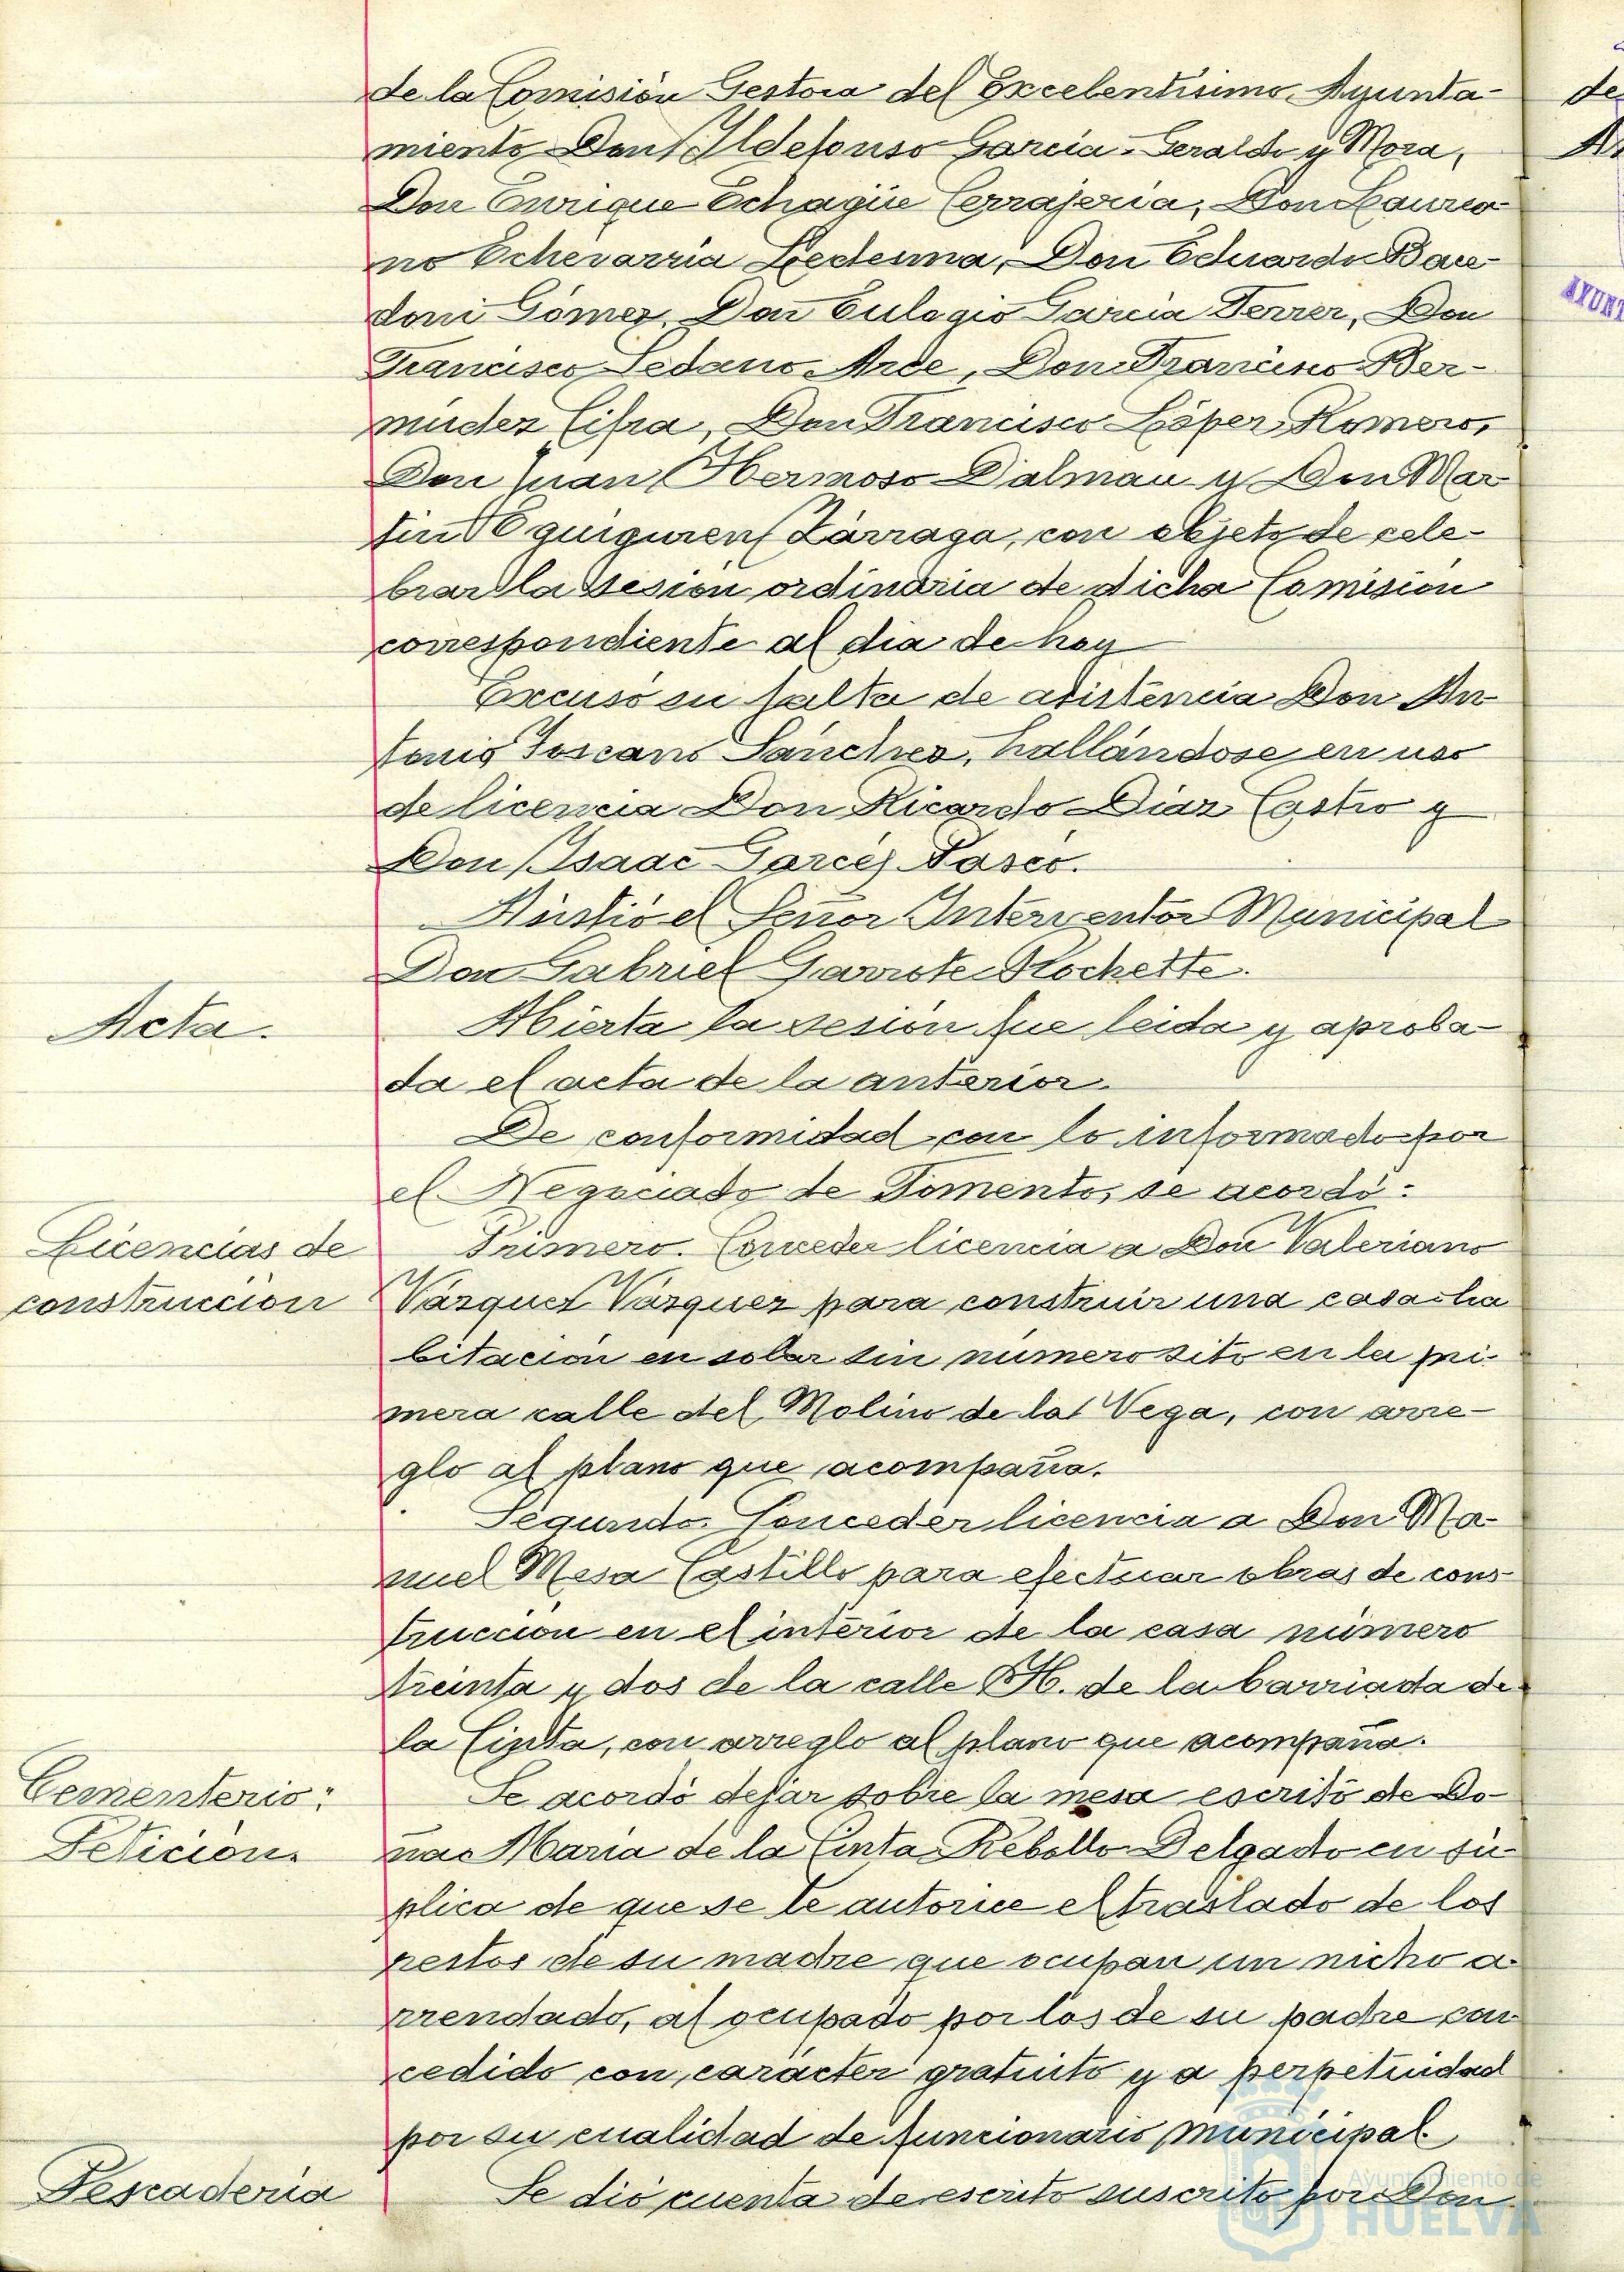 de la Comisión Gestora del Excelentísimo Ayunta-
miento Don Ildefonso Garcia-Geraldo y Mora,
Don Enrique Echagüe Cerrajeria, Don Laurea
no Echevarria Ledesma, Don Eduardo Bau-
doni Gómez, Don Eulogio Garcia Ferrer, Don
Francisco Sedano Arce, Don Francisco Ber-
mudez Cifra, Don Francisco López Romero,
Don Juan Hermoso Dalmau y Don Mar
tin Eguiguren Zárraga, con objeto de cele-
brar la sesión ordinaria de dicha Comision
correspondiente al dia de hoy
Excusó su falta de asistencia Don An
tonio Toscano Sánchez, hallándose en uso
de licencia Don Ricardo Diaz Castro y
Don Isaac Garcés Pasco.
Asistió el Señor Interventor Municipal
Don Gabriel Garrote Rochette.
Acta.
Abierta la sesión fue leida y aproba-
da el acta de la anterior.
De conformidad con lo informado por
el Negociado de Fomento, se acordó:
Licencias de
construccion
Primero. Conceder licencia a Don Valeriano
Vázquez Vázquez para construir una casa ha
bitación en solar sin número sito en la pri-
mera calle del Molino de la Vega, con arre-
glo al plano que acompaña.
Segundo. Conceder licencia a Don Ma-
nuel Mesa Castillo para efectuar obras de cons-
trucción en el interior de la casa número
treinta y dos de la calle H. de la barriada de
la Cinta, con arreglo al plano que acompaña.
Cementerio:
Petición.
Se acordó dejar sobre la mesa escrito de Do-
ña Maria de la Cinta Rebollo Delgado en sú-
plica de que se le autorice el traslado de los
restos de su madre que ocupan un nicho a-
rrendado, al ocupado por los de su padre con
cedido con carácter gratuito y a perpetuidad
por su cualidad de funcionario municipal
Pescaderia
Se dió cuenta de escrito suscrito por Don
Ayuntamiento de
HUELVA